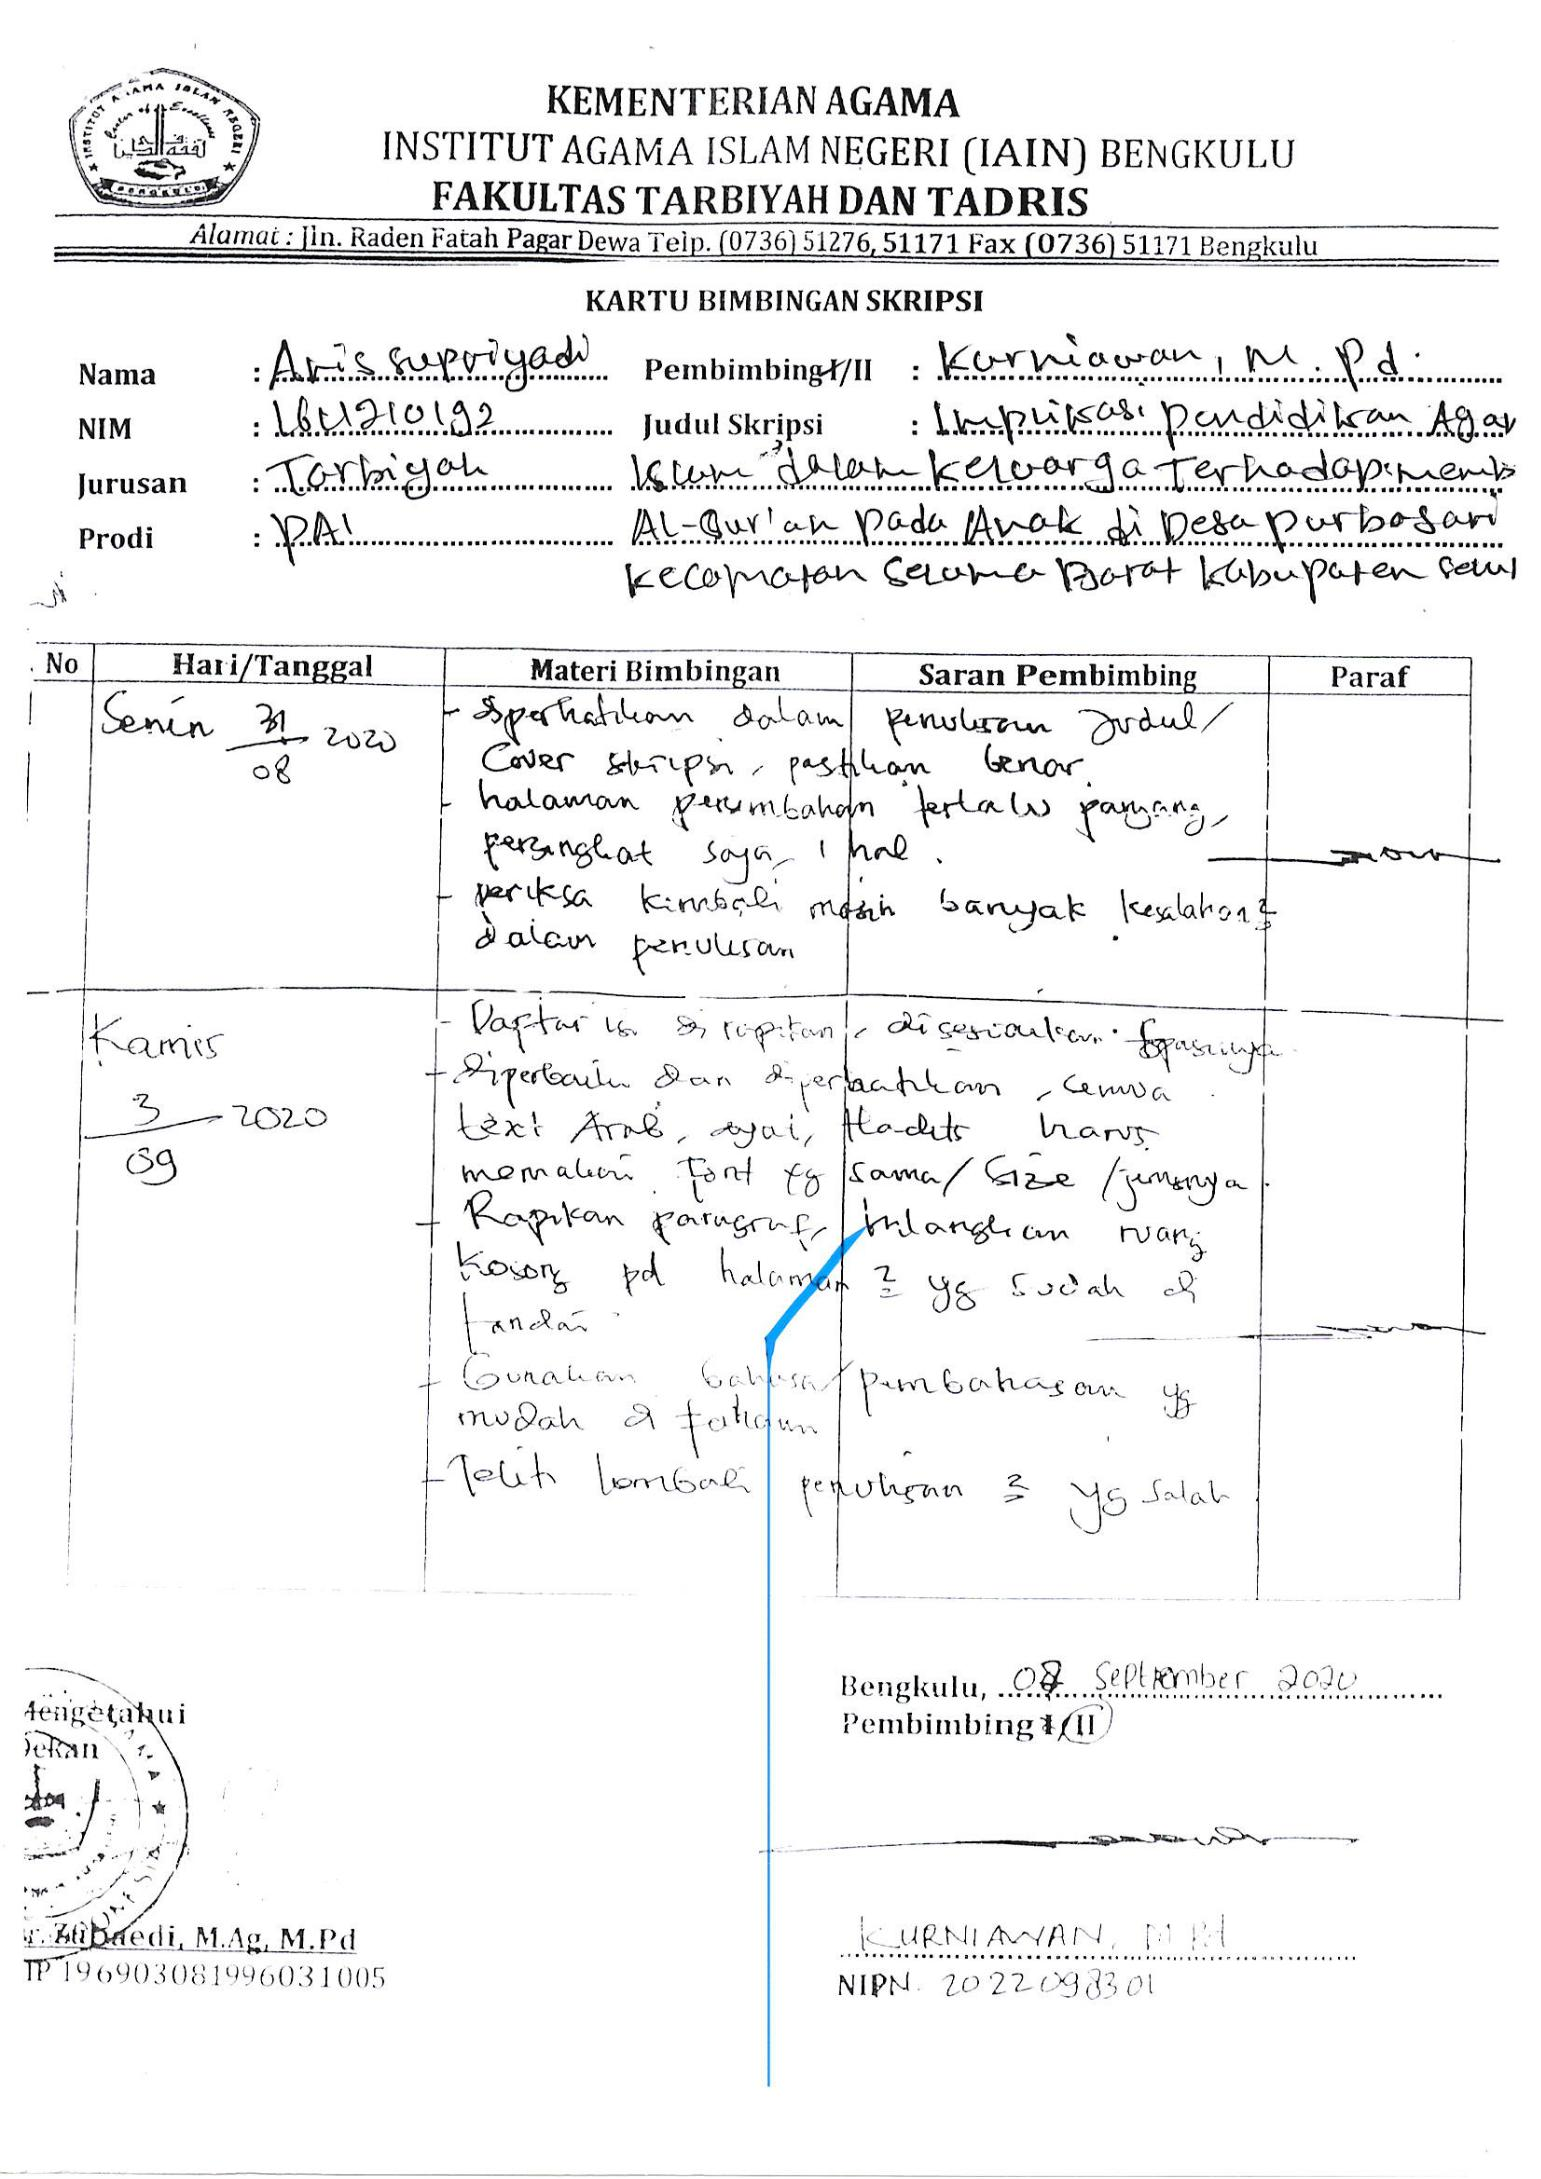 KEMENTERIAN AGAMA
INSTITUT AGAMA ISLAM NEGERI (IAIN) BENGKULU
FAKULTAS TARBIYAH DAN TADRIS
Alamat : Jln. Raden Fatah Pagar Dewa Telp. (0736) 51276, 51171 Fax (0736) 51171 Bengkulu
KARTU BIMBINGAN SKRIPSI
Nama : Aris supriyadi Pembimbing I/II : Kurniawan, M.Pd.
NIM : 1611210192 Judul Skripsi : Implikasi pendidikan Agam
Jurusan : Tarbiyah Islam dalam keluarga Terhadap memb
Prodi : PAI Al-Qur'an pada Anak di Desa purbosari
kecamatan Seluma Barat kabupaten selu
No Hari/Tanggal Materi Bimbingan Saran Pembimbing Paraf
1 Senin 31/08 2020 - diperhatikan dalam penulisan judul/
Cover skripsi, pastikan benar.
- halaman persembahan terlalu panjang,
persingkat saja, 1 hal.
- periksa kembali masih banyak kesalahan2
dalam penulisan
Kamis 3/09 2020 - Daftar isi di rapikan, disesuaikan spasinya
- diperbaiki dan diperhatikan, semua
text Arab, ayat, Hadits harus
memakai font yg sama/ size /jenisnya.
- Rapikan paragraf, hilangkan ruang
kosong pd halaman2 yg sudah di
tandai
- Gunakan bahasa/pembahasan yg
mudah di fahami
- Teliti kembali penulisan2 yg salah
Bengkulu, 07 September 2020
Mengetahui
Pembimbing I/II
Dekan
r. Zubaedi, M.Ag, M.Pd
KURNIAWAN, M.Pd
IP 196903081996031005
NIPN. 2022098301